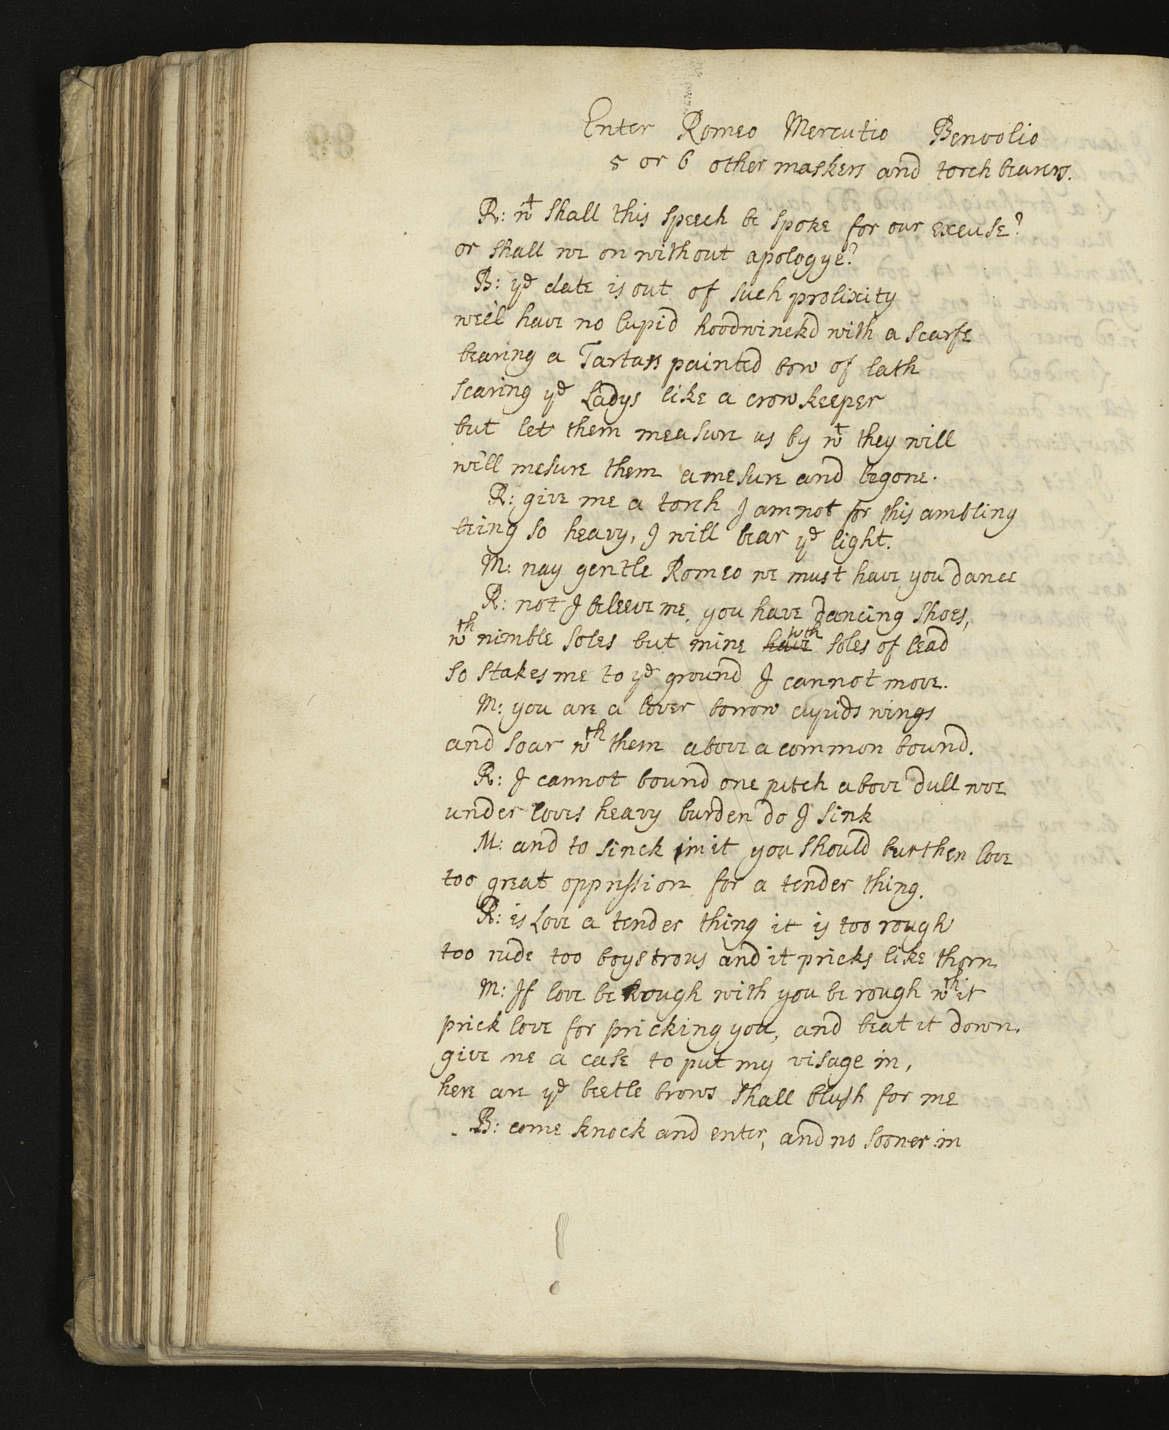 Enter Romeo Mercutio Benvolio
5 or 6 other maskers and torch bearers.
R: wt shall this speech be spoke for our excuse?
or shall we on without apologye?
B: ye date is out of such prolixity
wee'l have no Cupid hoodwinckd with a scarfe
bearing a Tartars painted bow of lath
scaring ye Ladys like a crow keeper
but let them measure us by wt they will
we'll mesure them a mesure and begone.
R: give me a torch I am not for this ambling
being so heavy, I will bear ye light.
M: nay gentle Romeo we must have you dance
R: not I beleeve me, you have dancing shoes,
wth nimble soles but mine have wth soles of lead
so stakes me to ye ground I cannot move.
M: you are a lover borrow cupids wings
and soar wth them above a common bound.
R: I cannot bound one pitch above dull woe
under loves heavy burden do I sink
M: and to sinck in it you should burthen love
too great oppression for a tender thing.
R: is Love a tender thing it is too rough
too rude too boystrous and it pricks like thorn
M: If love be rough with you be rough wth it
prick love for pricking you, and beat it down.
give me a case to put my visage in,
here are ye beetle brows shall blush for me
B: come knock and enter, and no sooner in